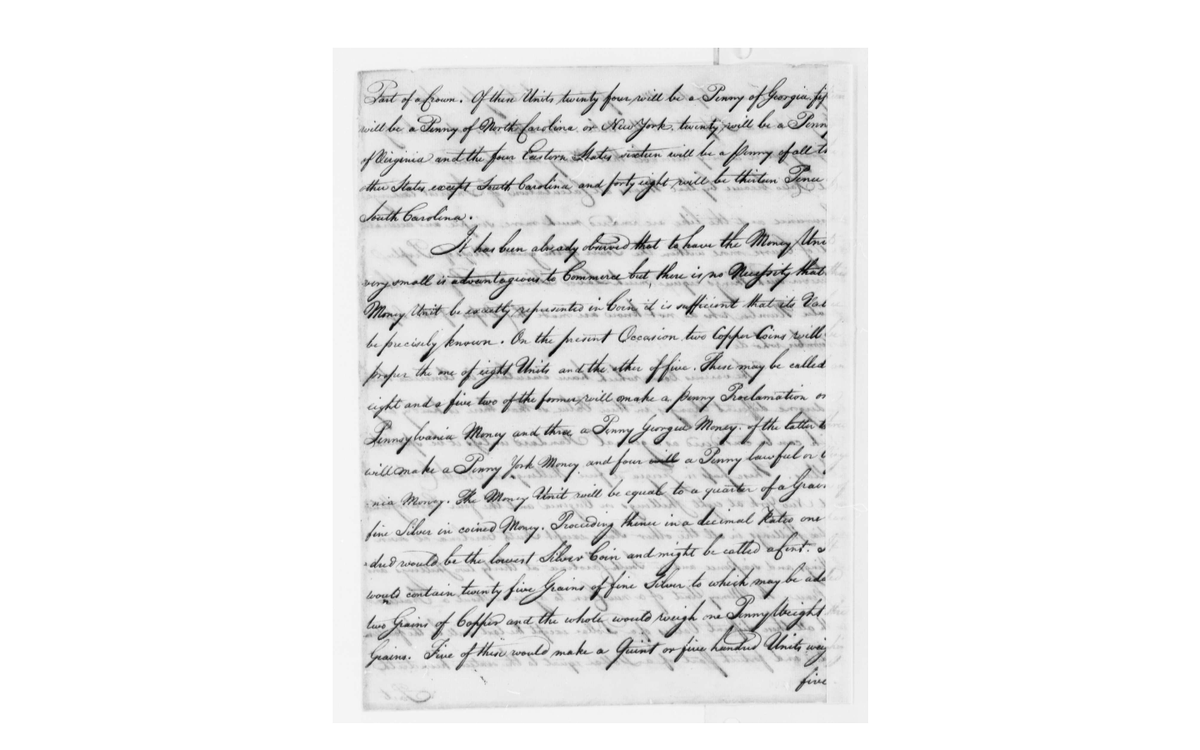 Part of a Crown. Of these Units twenty four will be a Penny of Georgia, fif
will be a Penny of North Carolina or New York, twenty will be a Penny
of Virginia and the four Eastern States sixteen will be a penny of all t
other States except South Carolina and forty eight will be thirteen Pence
South Carolina.
It has been already observed that to have the Money Uni
very small is advantagious to Commerce but, there is no Necessity that
Money Unit be exactly represented in Coin it is sufficient that its Val
be precisely known. On the present Occasion two Copper Coins will
proper the one of eight Units and the other of five. These may be called
eight and a five two of the former will make a penny Proclamation or
Pennsylvania Money and three a Penny Georgia Money. of the latter t
will make a Penny York Money and four will a Penny lawful or
nia Money. The Money Unit will be equal to a quarter of a Grain
fine Silver in coined Money. Proceeding thence in a decimal Ratio one
dred would be the lowest Silver Coin and might be called a Cent.
would contain twenty five Grains of fine Silver to which may be add
two Grains of Copper and the whole would weigh one Penny Weight
Grains. Five of these would make a Quint or five hundred Units weig
five